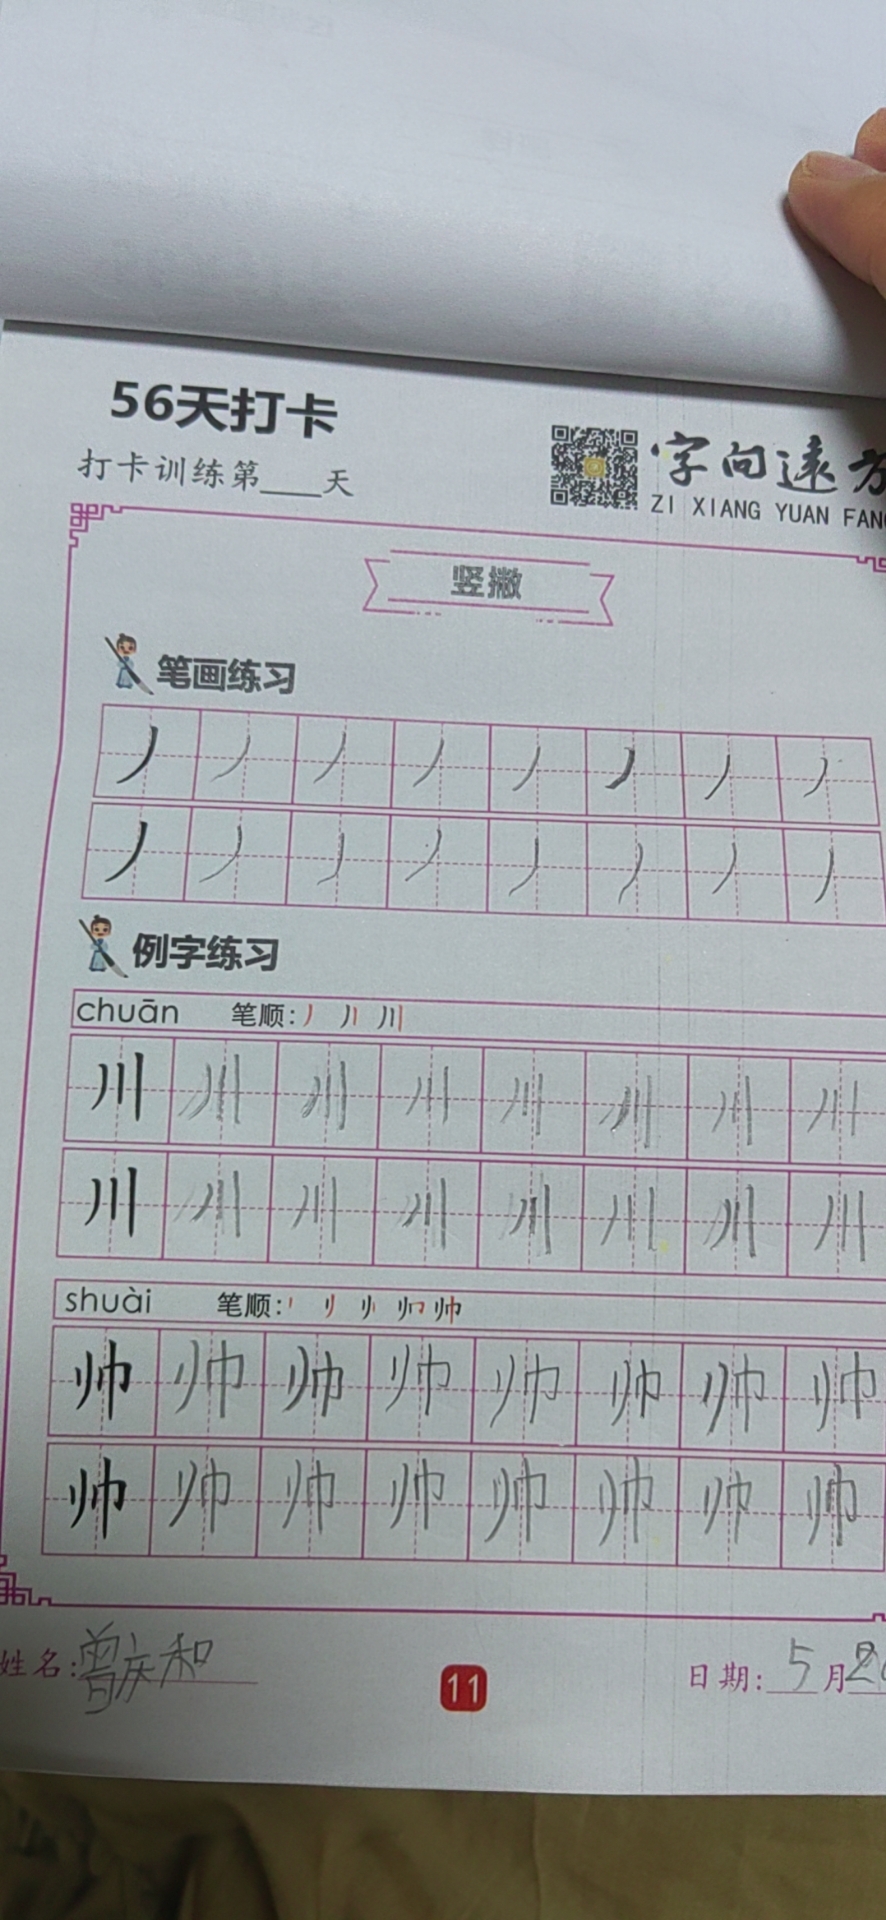 56天打卡
打卡训练第____天
字向远
ZI XIANG YUAN FANG
竖撇
笔画练习
丿 丿 丿 丿 丿 丿 丿 丿
丿 丿 丿 丿 丿 丿 丿 丿
例字练习
chuān 笔顺:丿 川
川 川 川 川 川 川 川 川
川 川 川 川 川 川 川 川
shuài 笔顺: 帅
帅 帅 帅 帅 帅 帅 帅 帅
帅 帅 帅 帅 帅 帅 帅 帅
姓名:曾庆和
11
日期:5月2